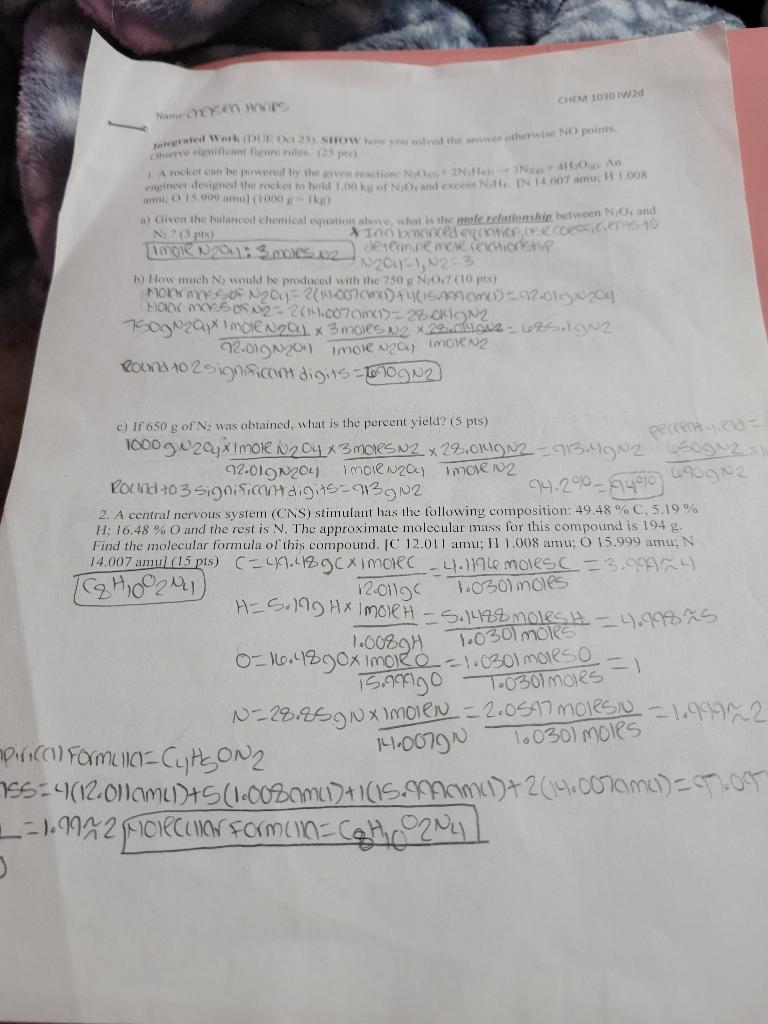 CHEM 1030 IW2d
Name
Integrated Work (DUE Oct 23). SHOW how you solved the answer otherwise NO points.
Observe significant figure rules. (25 pts)
1. A rocket can be powered by the given reaction: N₂O₄₍ₗ₎ + 2N₂H₄₍ₗ₎ → 3N₂₍g₎ + 4H₂O₍g₎. An
engineer designed the rocket to hold 1.00 kg of N₂O₄ and excess N₂H₄. [N 14.007 amu; H 1.008
amu; O 15.999 amu] (1000 g = 1kg)
a) Given the balanced chemical equation above, what is the mole relationship between N₂O₄ and
N₂ ? (3 pts)
* In a balanced equation, use coefficients to
1 mole N2O4 : 3 moles N2
determine mole relationship
N2O4=1, N2=3
b) How much N₂ would be produced with the 750 g N₂O₄? (10 pts)
Molar mass of N2O4 = 2(14.007amu)+4(15.999amu)=92.01gN2O4
Molar mass of N2 = 2(14.007amu)= 28.014gN2
750gN2O4 x 1 mole N2O4 x 3 moles N2 x 28.014gN2 = 685.1gN2
92.01gN2O4 1mole N2O4 1mole N2
Round to 2 significant digits = 690gN2
c) If 650 g of N₂ was obtained, what is the percent yield? (5 pts)
percent yield =
1000gN2O4 x 1mole N2O4 x 3moles N2 x 28.014gN2 = 913.4gN2 650gN2 x
92.01gN2O4 1mole N2O4 1mole N2 690gN2
Round to 3 significant digits = 913gN2 94.2% = 94%
2. A central nervous system (CNS) stimulant has the following composition: 49.48 % C, 5.19 %
H; 16.48 % O and the rest is N. The approximate molecular mass for this compound is 194 g.
Find the molecular formula of this compound. [C 12.011 amu; H 1.008 amu; O 15.999 amu; N
14.007 amu] (15 pts) C=49.48gC x 1moleC = 4.1196 molesC = 3.999≈4
C8H10O2N4 12.011gC 1.0301moles
H=5.19gH x 1moleH = 5.1488molesH = 4.998≈5
1.008gH 1.0301moles
O=16.48gO x 1moleO = 1.0301molesO = 1
15.999gO 1.0301moles
N=28.85gN x 1moleN = 2.0597molesN = 1.999≈2
14.007gN 1.0301moles
pirical Formula = C4H5ON2
ass=4(12.011amu)+5(1.008amu)+1(15.999amu)+2(14.007amu)=97.097
=1.99≈2 Molecular Formula = C8H10O2N4